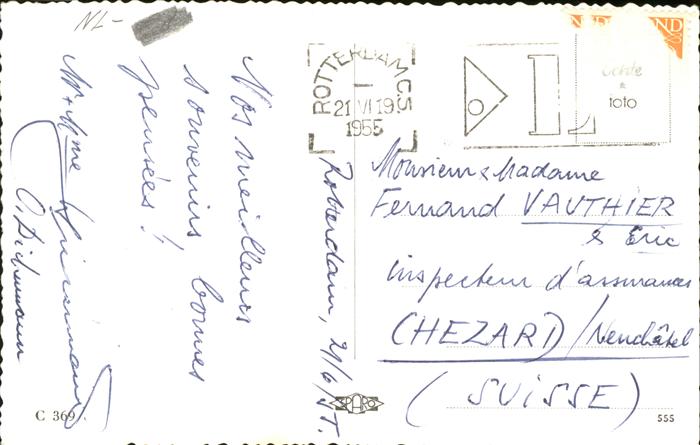 NL-
Nos meilleurs
souvenirs, bonnes
pensées !
Mr + Mme
Rotterdam, 21/6/55.
ROTTERDAM C.S.
21 VI 19
1955
NEDERLAND
toto
Monsieur & Madame
Fernand VAUTHIER
& Eric
inspecteur d'assurances
(CHEZARD) / Neuchâtel
(SUISSE)
C 369
SPARO
555